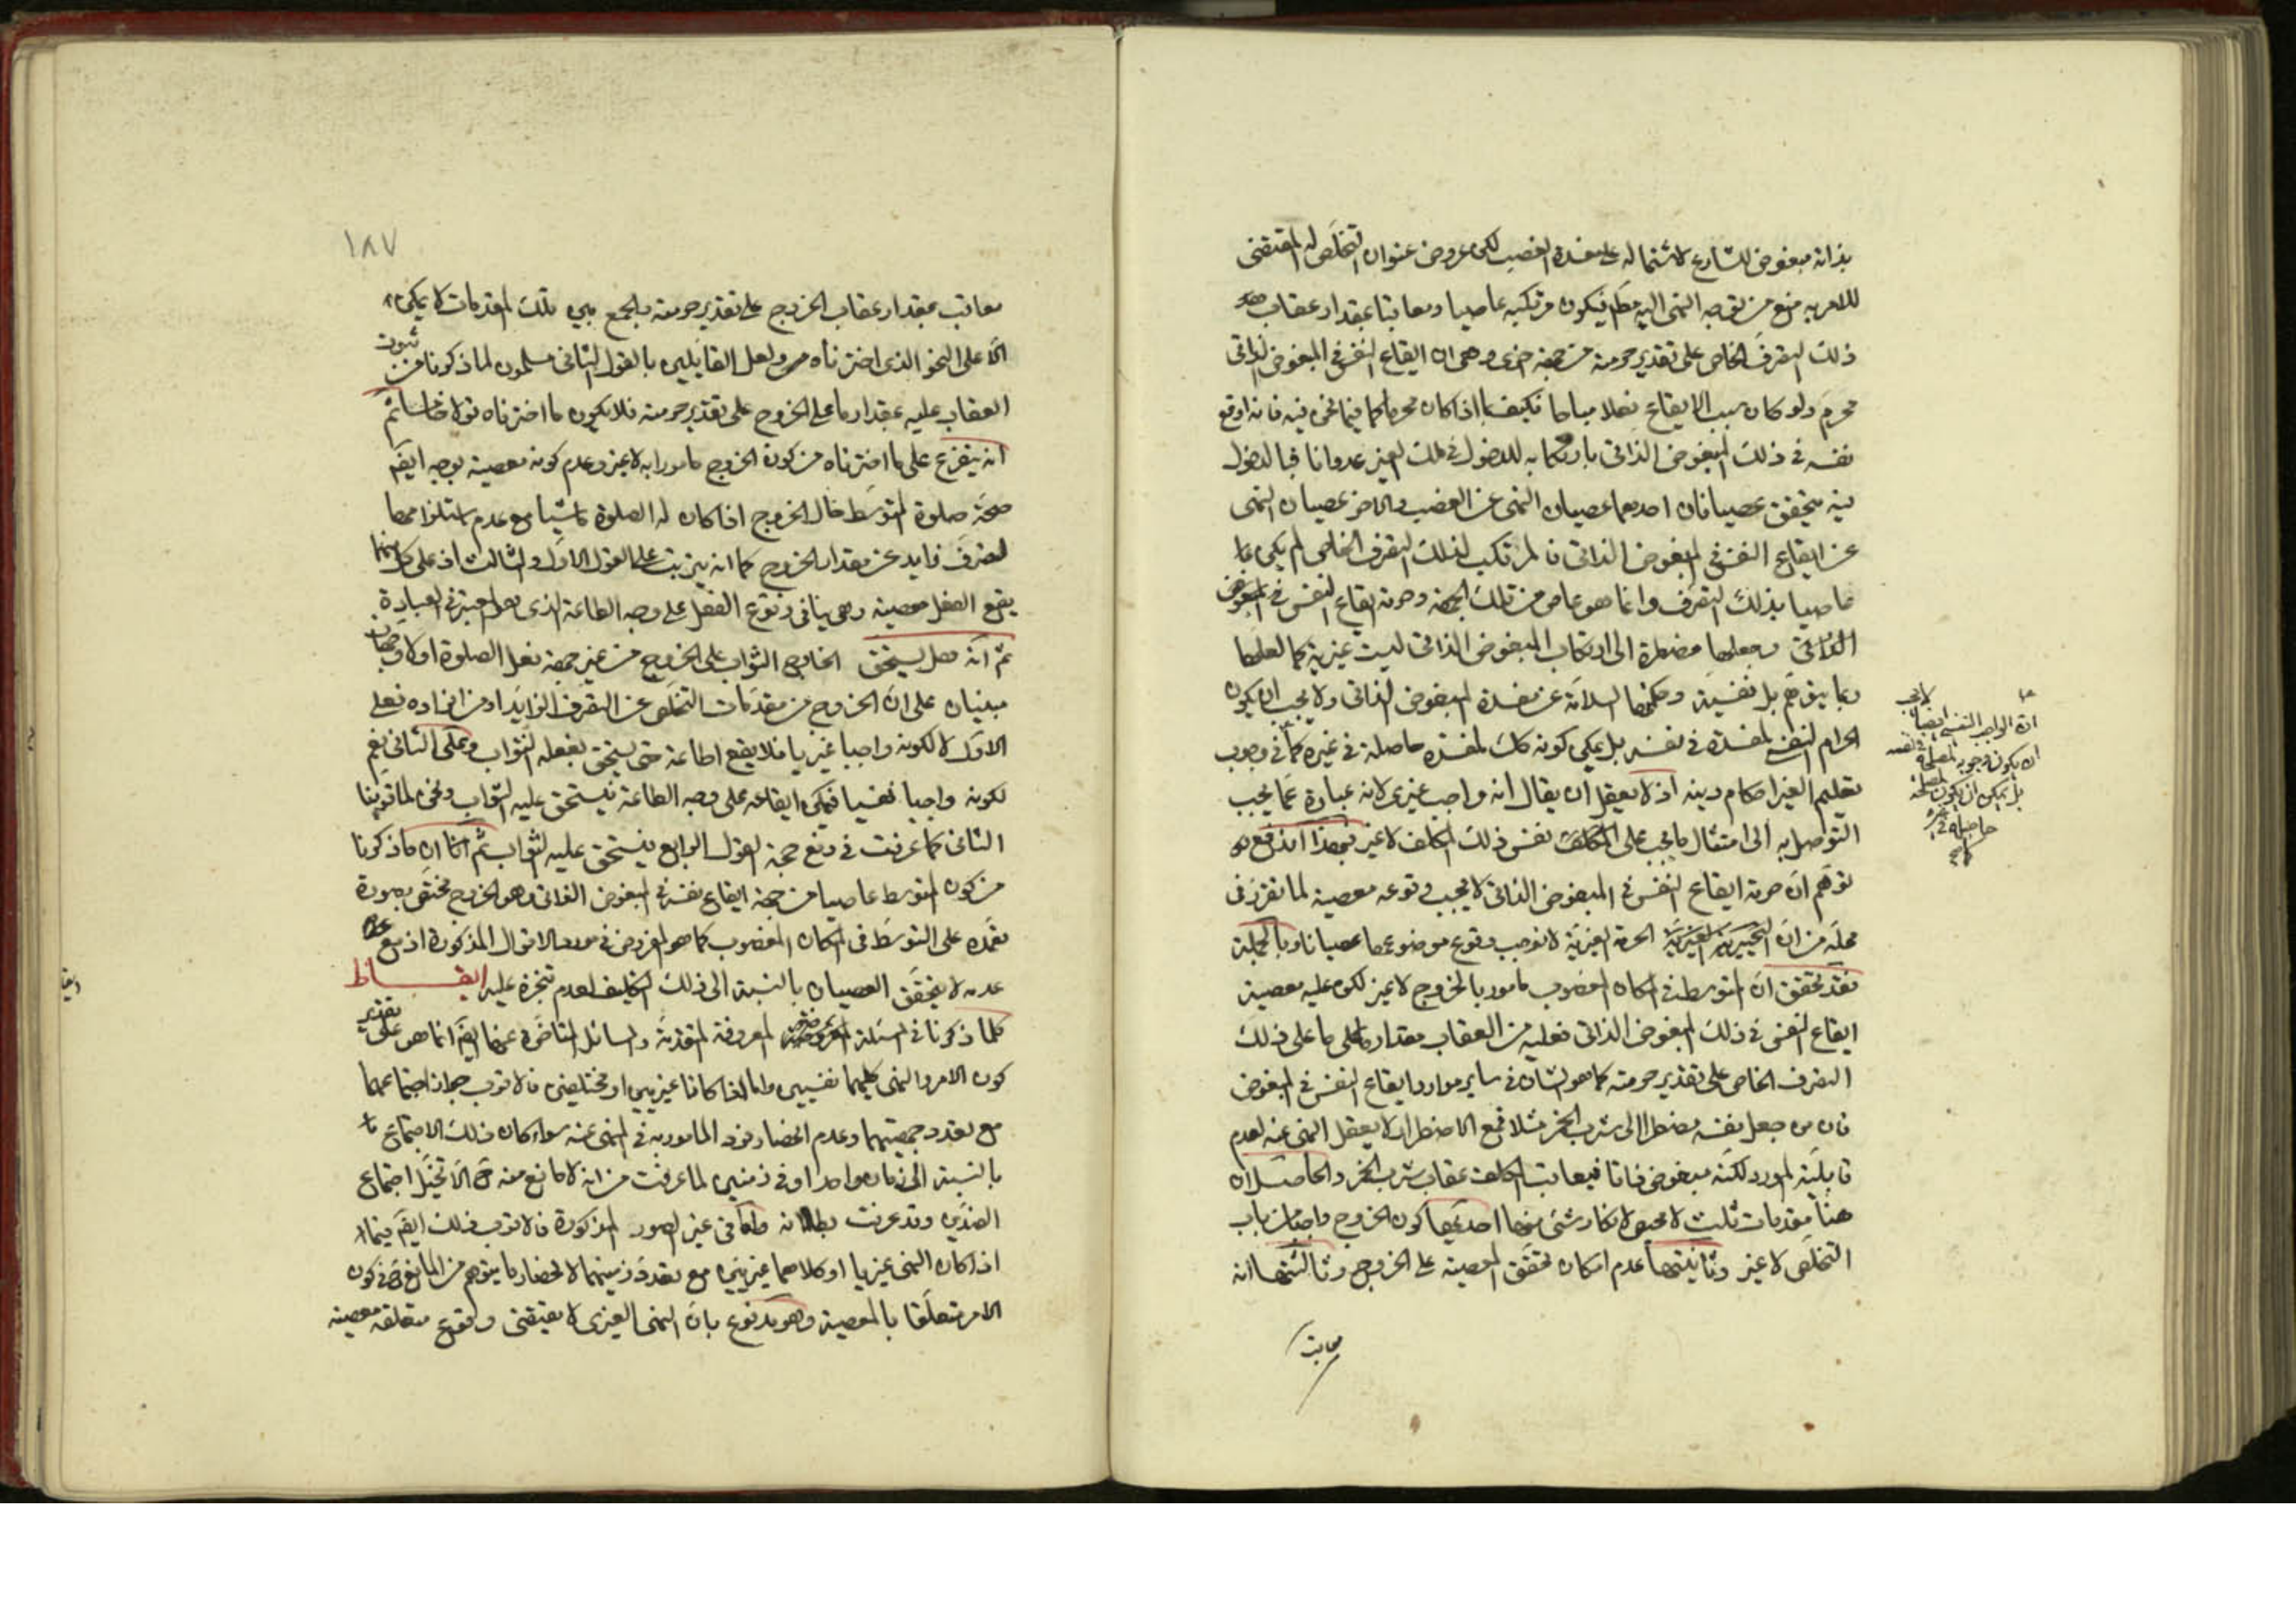 بذاته مبغوض للشارع لاشتماله على مفسدة الغصب لكن عروض عنوان التخلّص له المقتضى
للامر به منع من توجه النهى اليه مط فيكون مرتكبه عاصيا ومعاقبا بمقدار عقاب
ذلك التصرف الخاص على تقدير حرمته من جهة اخرى وهى ان ايقاع النفس فى المبغوض الذاتى
محرم ولو كان سبب الايقاع فعلا مباحا فكيف بما اذا كان محرما كما فيما نحن فيه فانه اوقع
نفسه فى ذلك المبغوض الذاتى بارتكابه للدخول فى ملك الغير عدوانا فبالدخول
فيه يتحقق عصيانان احدهما عصيان النهى عن الغصب والاخر عصيان النهى
عن ايقاع النفس فى المبغوض الذاتى فالمرتكب لذلك التصرف الخاص لم يكن
عاصيا بذلك التصرف وانما هو عاص من تلك الجهة وحرمة ايقاع النفس فى المبغوض
الذاتى وجعلها مضطرة الى ارتكاب المبغوض الذاتى ليست غيرية كما لعلها
ربما يتوهّم بل نفسيّة وحكمتها السلامة عن مفسدة المبغوض الذاتى ولا يجب ان يكون
الحرام النفسى لمفسدة فى نفسه بل يمكن كونه كك لمفسدة حاصلة فى غيره كما فى وجوب
تعليم الغير احكام دينه اذ لا يعقل ان يقال انه واجب غيرى لانه عبارة عمّا يجب
التوصل به الى امتثال ما يجب على المكلف نفس ذلك المكلف لا غير فبهذا اندفع
توهّم انّ حرمة ايقاع النفس فى المبغوض الذاتى لا يجب وقوعه معصية لما تقرر فى
محلّه من انّ الحرمة الغيريّة لا توجب وقوع موضوعها عصيانا وبالجملة
فقد تحقق انّ المتوسط فى المكان المغصوب مامور بالخروج لا غير لكن عليه معصية
ايقاع النفس فى ذلك المبغوض الذاتى فعليه من العقاب مقدار ما على ذلك
التصرف الخاص على تقدير حرمته كما هو الشان فى ساير موارد ايقاع النفس فى المبغوض
فان من جعل نفسه مضطرا الى شرب الخمر مثلا فمع الاضطرار لا يعقل النهى عنه لعدم
قابليّة المورد لكنّه مبغوض ذاتا فيعاقب المكلف عقاب شرب الخمر والحاصل ان
هنا مقدمات ثلث لا محيص لانكار شئ منها احديها كون الخروج واجبا من باب
التخلّص لا غير وثانيتها عدم امكان تحقّق المعصية على الخروج وثالثتها انه
معاقب
لا يجب
انّ الواجب النفسى ايضا
ان يكون وجوبه لمصلحة فى نفسه
بل يمكن ان يكون لمصلحة
حاصلة فى غيره
١٨٧
معاقب بمقدار عقاب الخروج على تقدير حرمته والجمع بين تلك المقدمات لا يمكن
الّا على النحو الذى اخترناه ولعل القايلين بالقول الثانى مسلمون لما ذكرنا من ثبوت
العقاب عليه بمقدار ما على الخروج على تقدير حرمته فلا يكون ما اخترناه قولا خامسا ثم
انه يتفرع على ما اخترناه من كون الخروج مامورا به لا غير وعدم كونه معصية بوجه ايضا
صحّة صلوة المتوسّط حال الخروج اذا كان له الصلوة ماشيا مع عدم استلزامها
لتصرّف زايد عن مقدار الخروج كما انه يترتب على القول الاوّل والثالث اذ على كل منهما
يقع الفعل معصية وهى ينافى وقوع الفعل على وجه الطاعة الذى هو المعتبر فى العبادة
ثمّ انّه هل يستحق الخارج الثواب على الخروج من غير جهة فعل الصلوة او لا وجهان
مبنيان على انّ الخروج من مقدّمات التخلّص عن التصرف الزايد او من افراده فعلى
الاوّل لا لكونه واجبا غيريا فلا يقع اطاعة حتى يستحق بفعله الثواب وعلى الثانى نعم
لكونه واجبا نفسيا فيمكن ايقاعه على وجه الطاعة فيستحق عليه الثواب ونحن لما قوّينا
الثانى كما عرفت فى دفع حجة القول الرابع فيستحق عليه الثواب ثم ان ما ذكرنا
من كون المتوسط عاصيا من جهة ايقاع نفسه فى المبغوض الذاتى وهو الخروج مختصّ بصورة
تعمّده على التوسّط فى المكان المغصوب كما هو المفروض فى مورد الاقوال المذكورة اذ مع
عدمه لا يتحقّق العصيان بالنسبة الى ذلك التكليف لعدم تنجّزه عليه ايقاظ
كلما ذكرنا فى المسئلة المعروفة المتقدمة والمسائل المتاخّرة عنها ايضا انما هو على تقدير
كون الامر والنهى كليهما نفسيين واما اذا كانا غيريين او مختلفين فالاقرب جواز اجتماعهما
مع تعدد جهتيهما وعدم انحصار فرد المامور به فى المنهى عنه سواء كان ذلك الاجتماع
بالنسبة الى زمان واحد او فى زمنين لما عرفت من انه لا مانع منه ح الّا تخيّل اجتماع
الضدّين وقد عرفت بطلانه واما فى غير الصور المذكورة فالاقرب ذلك ايضا فيما
اذا كان النهى غيريا او كلاهما غيريين مع تعدد زمنيهما لانحصار ما يتوهم من المانع ح فى كون
الامر متعلّقا بالمعصية وهو مدفوع بان النهى الغيرى لا يقتضى وقوع متعلقه معصية